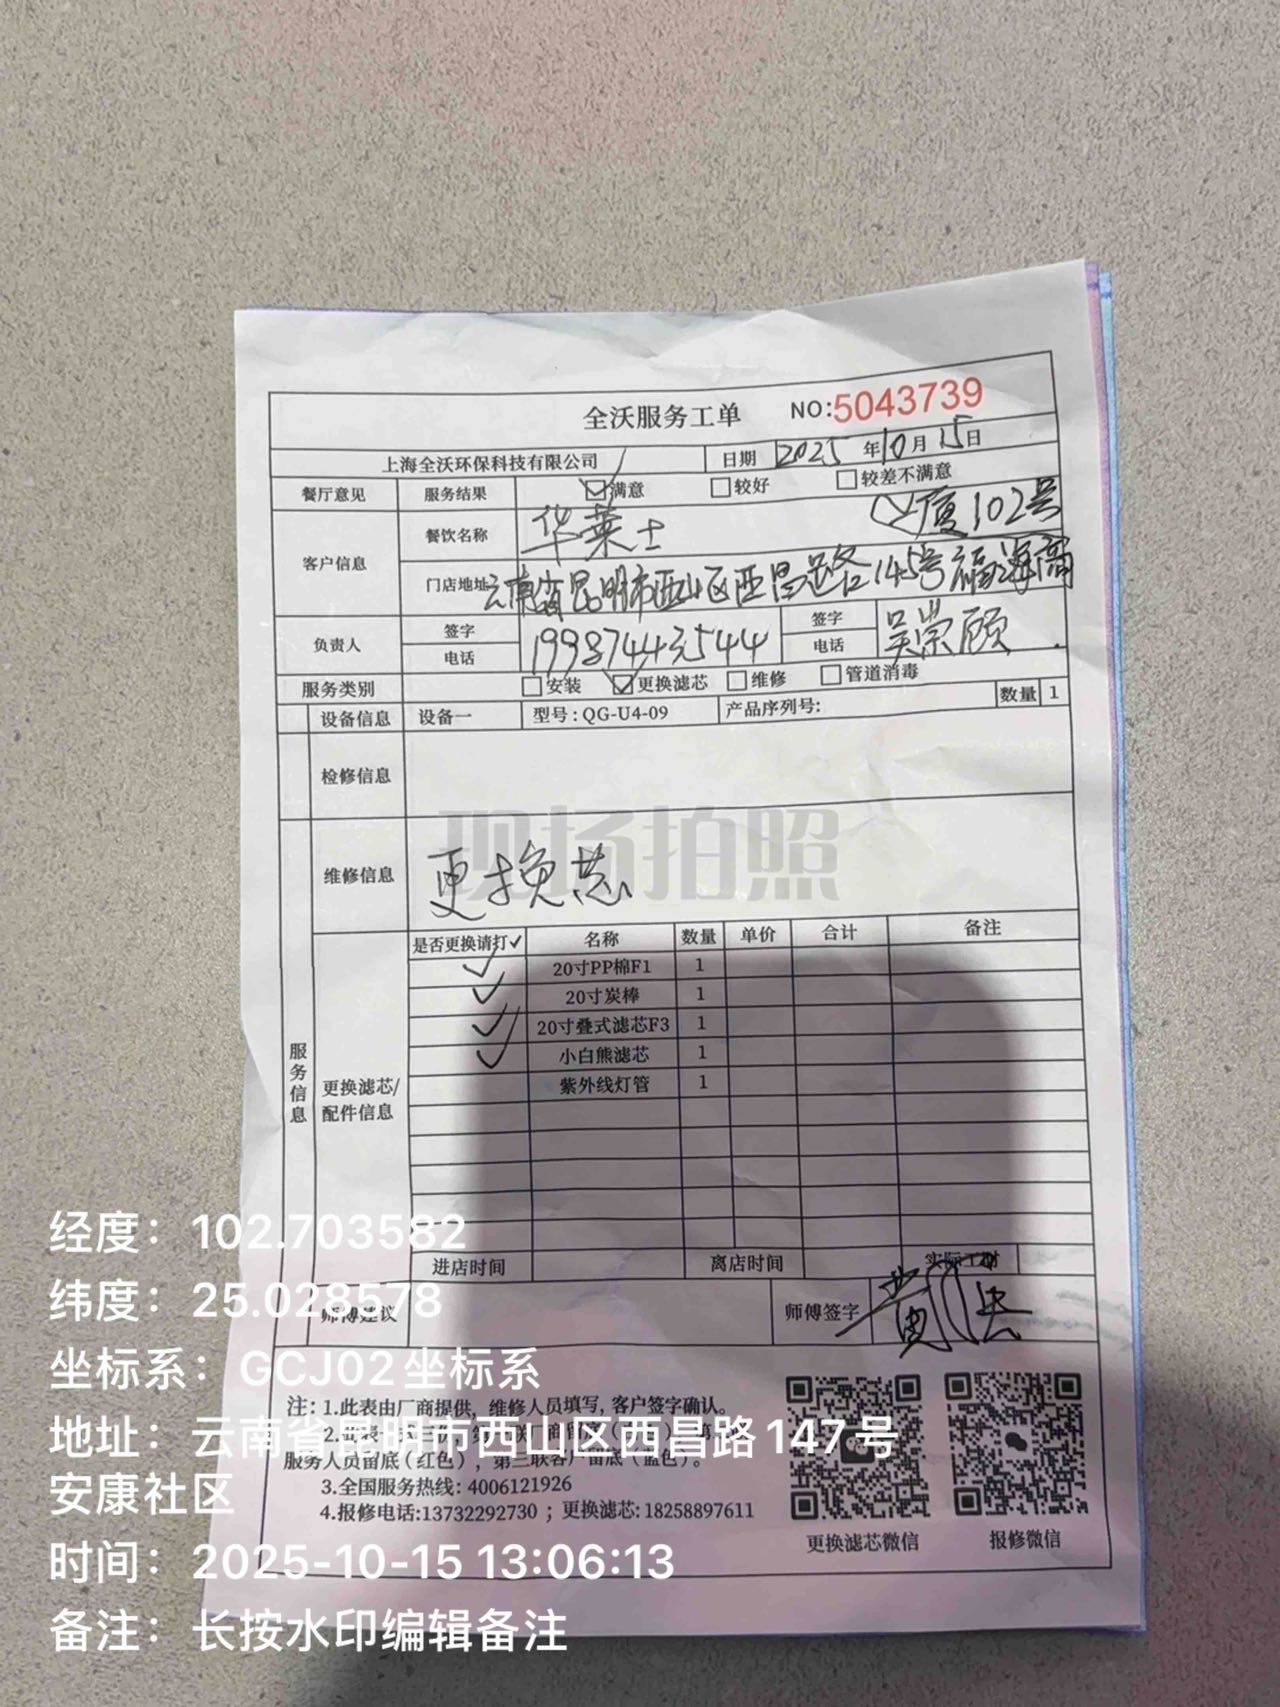 全沃服务工单 NO:5043739
上海全沃环保科技有限公司 日期 2025年10月15日
餐厅意见 服务结果 ☑满意 □较好 □较差不满意
客户信息 餐饮名称 华莱士
厦102号
门店地址 云南省昆明市西山区西昌路145号福海高
负责人 签字 签字
电话 19987443544 电话 吴崇顾
服务类别 □安装 ☑更换滤芯 □维修 □管道消毒
设备信息 设备一 型号:QG-U4-09 产品序列号: 数量 1
检修信息
现场拍照
维修信息 更换芯
是否更换请打✓ 名称 数量 单价 合计 备注
✓ 20寸PP棉F1 1
✓ 20寸炭棒 1
✓ 20寸叠式滤芯F3 1
✓ 小白熊滤芯 1
紫外线灯管 1
服务信息
更换滤芯/
配件信息
进店时间 离店时间 实际工时
师傅建议 师傅签字 黄
注: 1.此表由厂商提供, 维修人员填写, 客户签字确认。
服务人员留底(红色), 第三联客户留底(蓝色)。
3.全国服务热线: 4006121926
4.报修电话:13732292730 ; 更换滤芯: 18258897611
更换滤芯微信 报修微信
经度: 102.703582
纬度: 25.028578
坐标系: GCJ02坐标系
地址: 云南省昆明市西山区西昌路147号
安康社区
时间: 2025-10-15 13:06:13
备注: 长按水印编辑备注